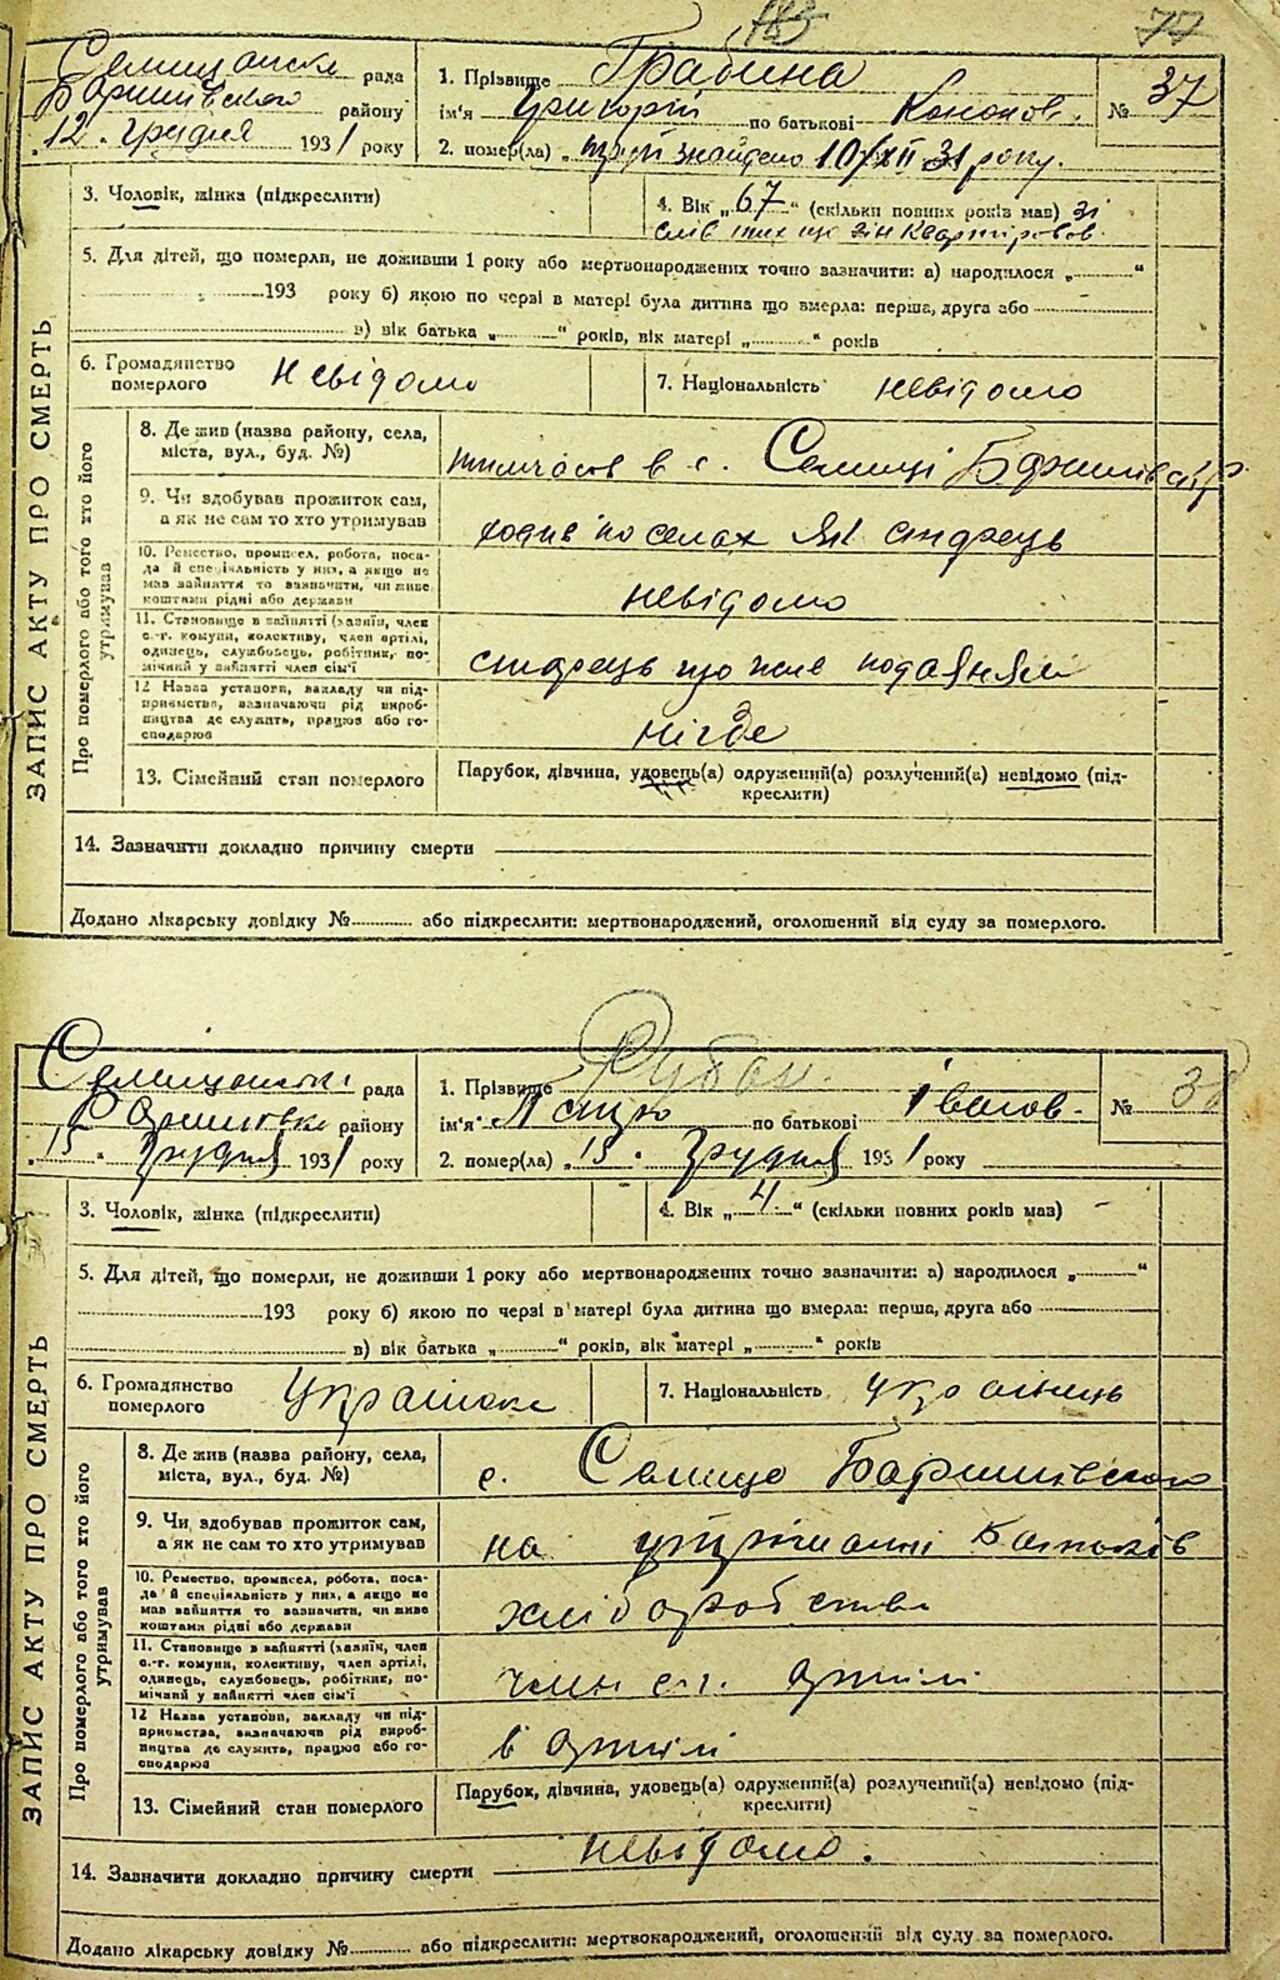 77
Селищанська рада
Баришівського району
"12" грудня 1931 року
1. Прізвище Грабина
ім'я Григорій по батькові Кононов.
№ 37
2. помер(ла) " труп знайдено 10/XII 31 року.
3. Чоловік, жінка (підкреслити)
4. Вік „67" (скільки повних років мав) зі
слів тих що він квартіровов.
5. Для дітей, що померли, не доживши 1 року або мертвонароджених точно зазначити: а) народилося „ "
193 року б) якою по черзі в матері була дитина що вмерла: перша, друга або
в) вік батька „ " років, вік матері „ " років
6. Громадянство померлого невідомо
7. Національність невідомо
ЗАПИС АКТУ ПРО СМЕРТЬ
Про померлого або того хто його утримував
8. Де жив (назва району, села,
міста, вул., буд. №)
тимчасов в с. Селищі Баришівськ
9. Чи здобував прожиток сам,
а як не сам то хто утримував
ходив по селах як старець
10. Ремество, промисел, робота, поса-
да й спеціяльність у них, а якщо не
мав зайняття то зазначити, чи живе
коштами рідні або держави
невідомо
11. Становище в зайнятті (хазяїн, член
с.-г. комуни, колективу, член артілі,
одинець, службовець, робітник, по-
мічний у зайнятті член сім'ї
старець що жив подаяням
12 Назва установи, закладу чи під-
приємства, зазначаючи рід вироб-
ництва де служить, працює або го-
сподарює
нігде
13. Сімейний стан померлого
Парубок, дівчина, удовець(а) одружений(а) розлучений(а) невідомо (під-
креслити)
14. Зазначити докладно причину смерти
Додано лікарську довідку № або підкреслити: мертвонароджений, оголошений від суду за померлого.
Селищанська рада
Баришівськ району
"15" грудня 1931 року
1. Прізвище Рубан
ім'я по батькові Іванов.
№ 38
2. помер(ла) „15" грудня 1931 року
3. Чоловік, жінка (підкреслити)
4. Вік „4" (скільки повних років мав)
5. Для дітей, що померли, не доживши 1 року або мертвонароджених точно зазначити: а) народилося „ "
193 року б) якою по черзі в матері була дитина що вмерла: перша, друга або
в) вік батька „ " років, вік матері „ " років
6. Громадянство померлого Українське
7. Національність українець
ЗАПИС АКТУ ПРО СМЕРТЬ
Про померлого або того хто його утримував
8. Де жив (назва району, села,
міста, вул., буд. №)
с. Селище Баришівського
9. Чи здобував прожиток сам,
а як не сам то хто утримував
на утриманні батьків
10. Ремество, промисел, робота, поса-
да й спеціяльність у них, а якщо не
мав зайняття то зазначити, чи живе
коштами рідні або держави
хліборобство
11. Становище в зайнятті (хазяїн, член
с.-г. комуни, колективу, член артілі,
одинець, службовець, робітник, по-
мічний у зайнятті член сім'ї
член с.г. артілі
12 Назва установи, закладу чи під-
приємства, зазначаючи рід вироб-
ництва де служить, працює або го-
сподарює
в артілі
13. Сімейний стан померлого
Парубок, дівчина, удовець(а) одружений(а) розлучений(а) невідомо (під-
креслити)
14. Зазначити докладно причину смерти невідомо.
Додано лікарську довідку № або підкреслити: мертвонароджений, оголошений від суду за померлого.